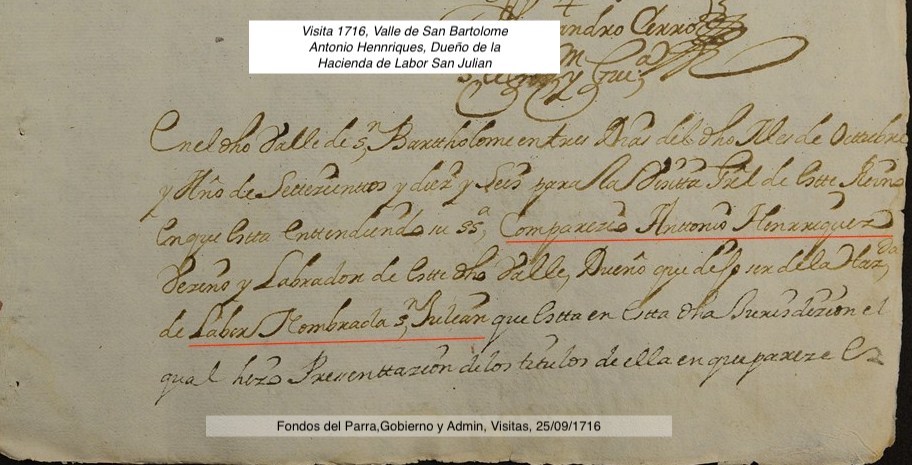 Visita 1716, Valle de San Bartolome
Antonio Hennriques, Dueño de la
Hacienda de Labor San Julian
andro Cerro
En el dho Valle de Sn Barttholome en tres Dias del dho Mes de Octtubre
y Año de Settezientos y diez y Seis para la Visitta Gral de Estte Reino
En que Estta Enttendiendo su Sa, Comparezio Anttonio Henrriquez
Vezino y Labrador de Estte dho Valle, Dueño que dijo ser de la Hazda
de Labor Nombrada Sn Julean que Estta en Estta dha Jurisdizion el
qual hizo Presenttazion de los titulos de ella en que pareze
Fondos del Parra,Gobierno y Admin, Visitas, 25/09/1716